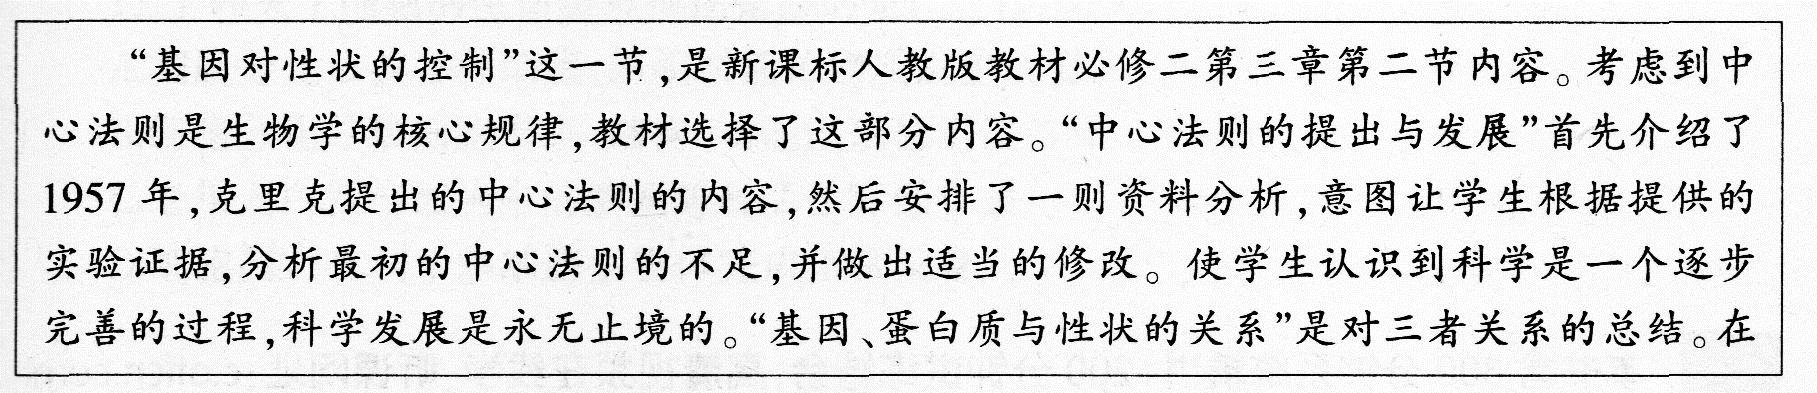 “基因对性状的控制”这一节,是新课标人教版教材必修二第三章第二节内容。考虑到中
心法则是生物学的核心规律,教材选择了这部分内容。“中心法则的提出与发展”首先介绍了
1957 年,克里克提出的中心法则的内容,然后安排了一则资料分析,意图让学生根据提供的
实验证据,分析最初的中心法则的不足,并做出适当的修改。使学生认识到科学是一个逐步
完善的过程,科学发展是永无止境的。“基因、蛋白质与性状的关系”是对三者关系的总结。在